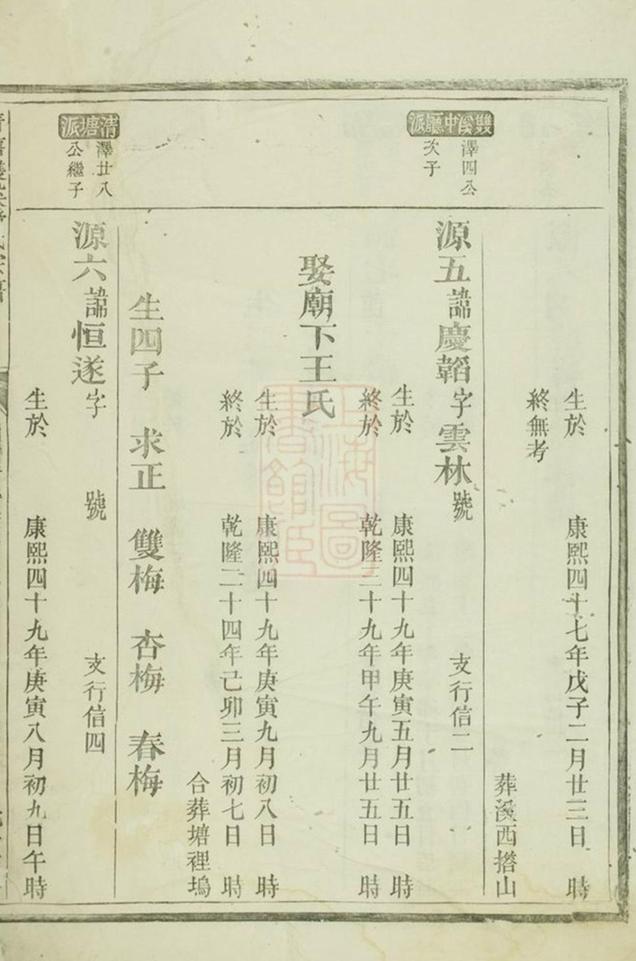 生於　康熙四十七年戊子二月廿三日　時
終無考
葬溪西㙮山
雙溪中廳派
澤四公
次子
源五諱慶韜字雲林號　支行信二
生於　康熙四十九年庚寅五月廿五日　時
終於　乾隆三十九年甲午九月廿五日　時
娶廟下王氏
生於　康熙四十九年庚寅九月初八日　時
終於　乾隆二十四年己卯三月初七日　時
合葬塘裡塢
生四子　求正　雙梅　杏梅　春梅
清塘派
澤廿八
公繼子
源六諱恒遂字　號　支行信四
生於　康熙四十九年庚寅八月初九日午時
上海圖書館藏